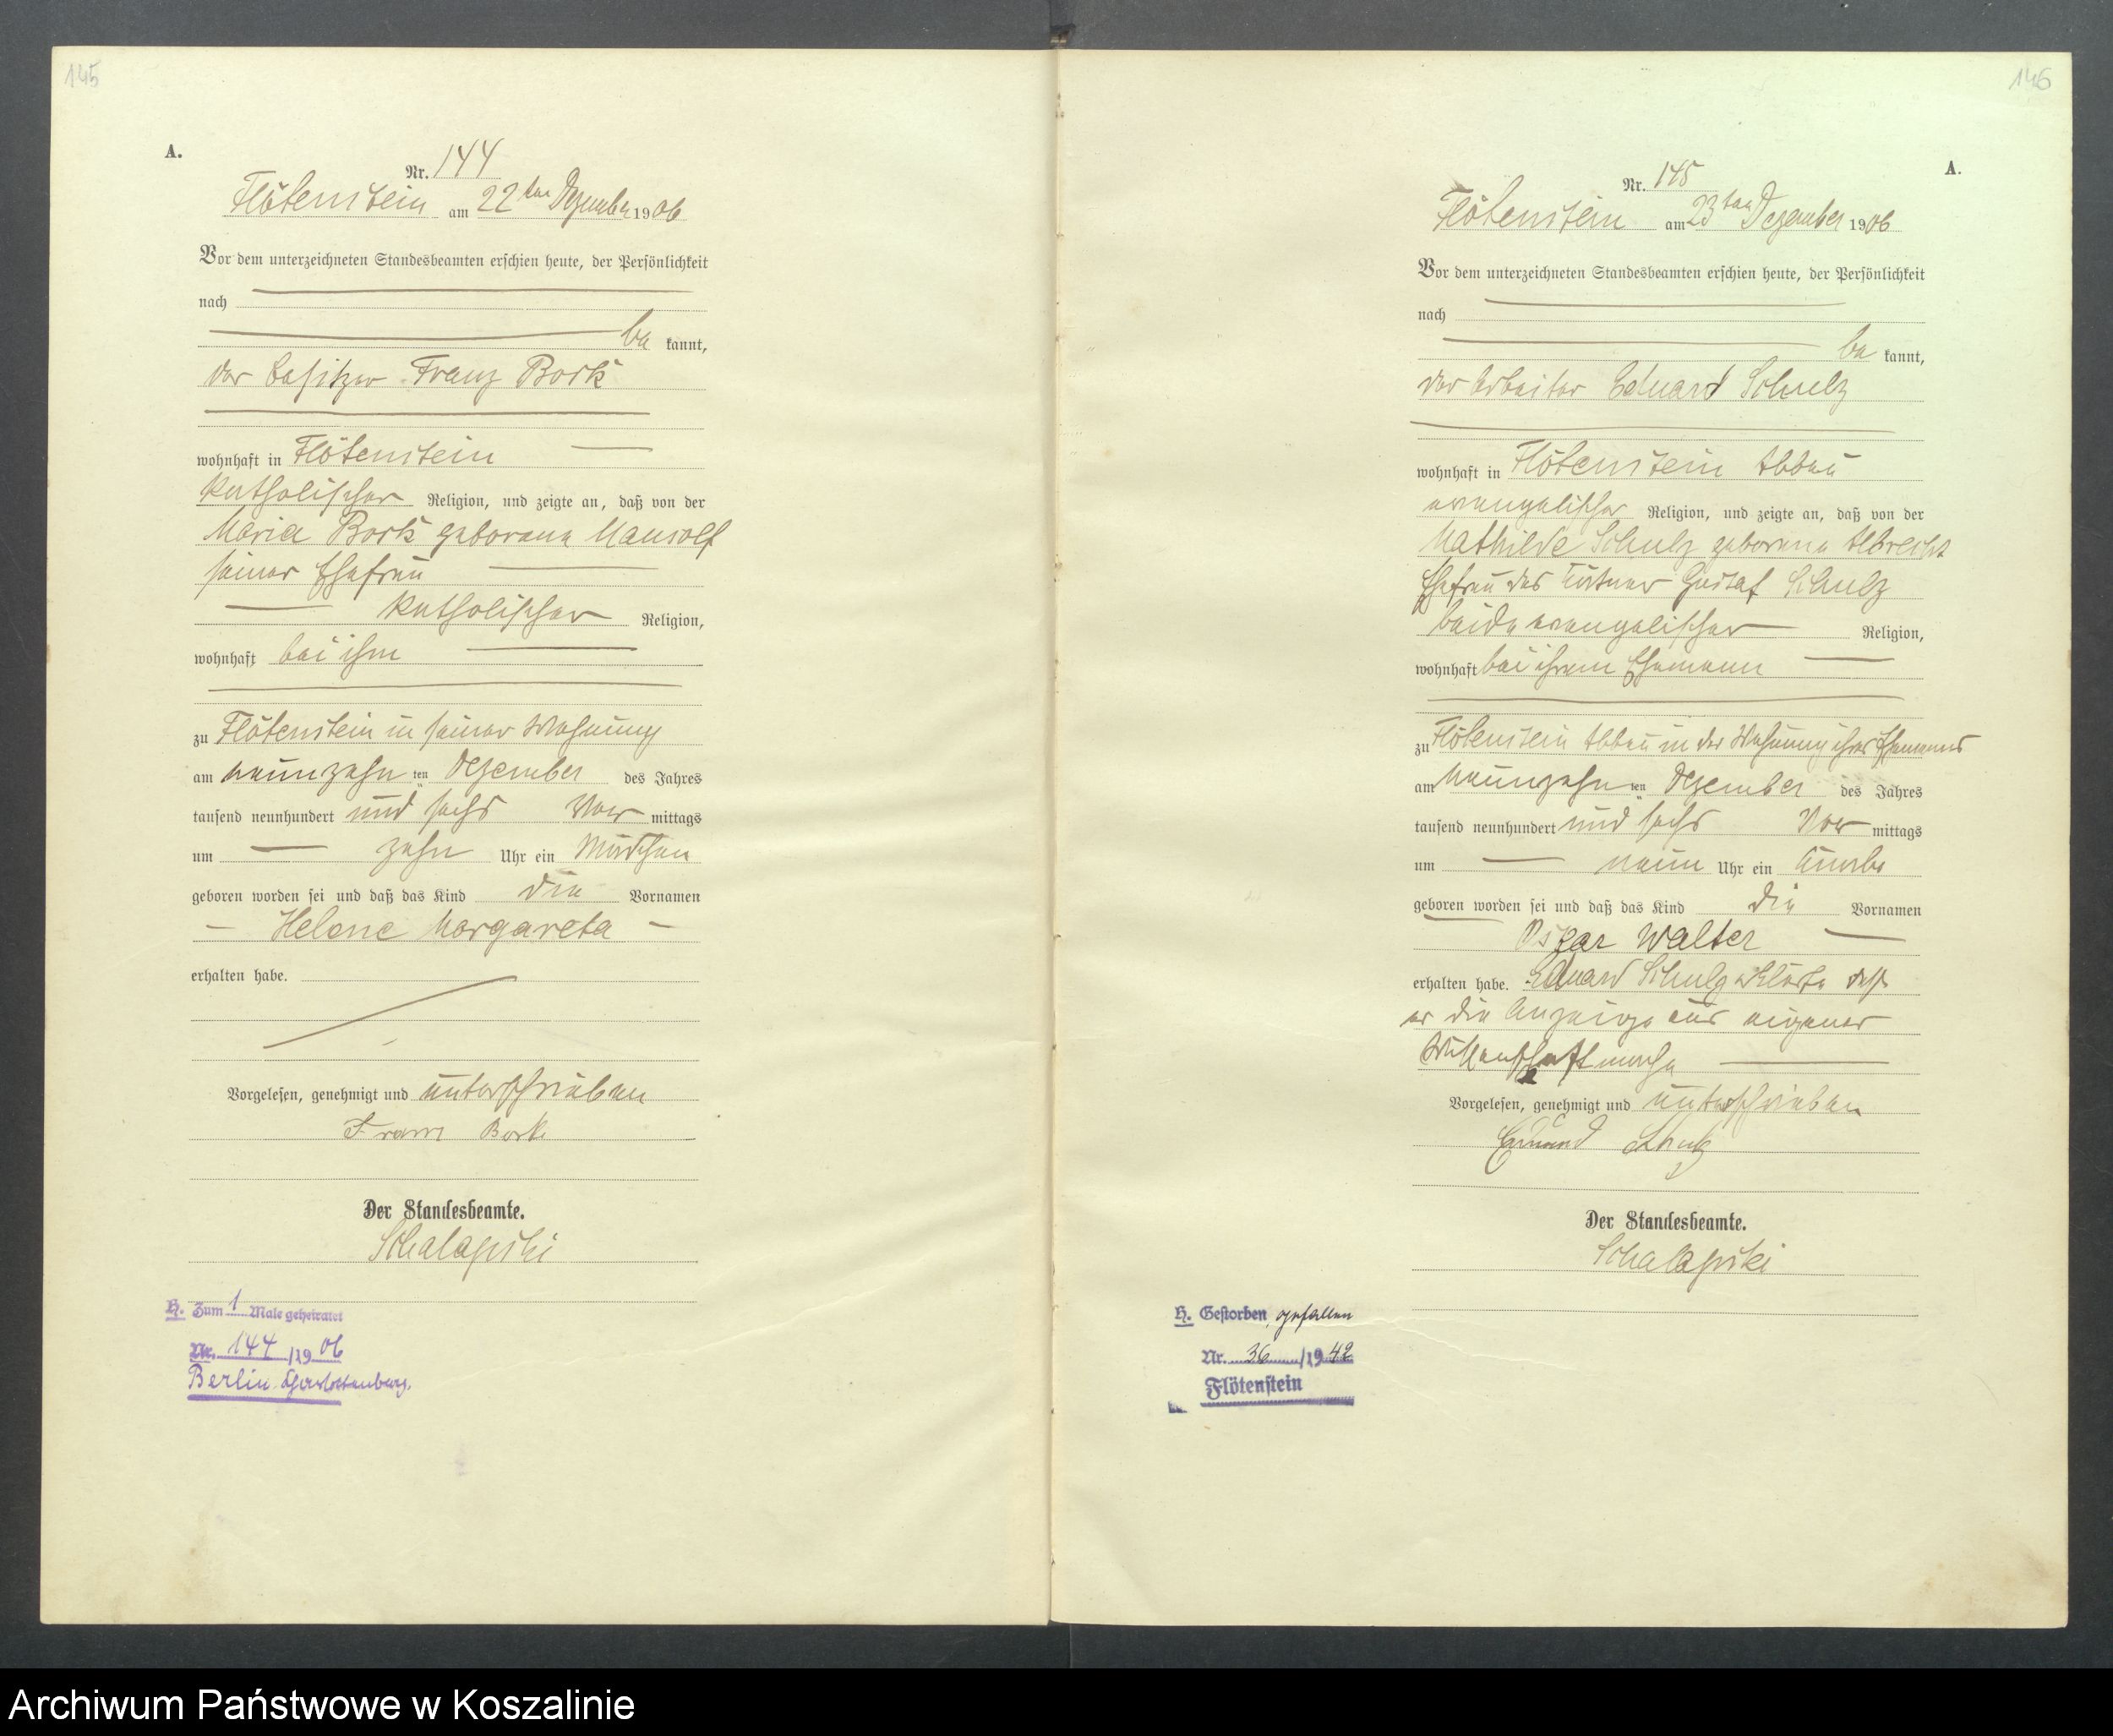 145
A.
Nr. 144
Flötenstein am 22ten Dezember 1906
Vor dem unterzeichneten Standesbeamten erschien heute, der Persönlichkeit
nach
be kannt,
der Besitzer Franz Bork
wohnhaft in Flötenstein
katholischer Religion, und zeigte an, daß von der
Maria Bork geborene Mausolf
seiner Ehefrau
katholischer Religion,
wohnhaft bei ihm
zu Flötenstein in seiner Wohnung
am neunzehn ten Dezember des Jahres
tausend neunhundert und sechs Vor mittags
um zehn Uhr ein Mädchen
geboren worden sei und daß das Kind die Vornamen
Helene Margareta
erhalten habe.
Vorgelesen, genehmigt und unterschrieben
Franz Bork
Der Standesbeamte.
Schalapski
H. Zum 1 Male geheiratet
Nr. 144/1906
Berlin-Charlottenburg.
146
A.
Nr. 145
Flötenstein am 23ten Dezember 1906
Vor dem unterzeichneten Standesbeamten erschien heute, der Persönlichkeit
nach
be kannt,
der Arbeiter Eduard Schulz
wohnhaft in Flötenstein Abbau
evangelischer Religion, und zeigte an, daß von der
Mathilde Schulz geborene Albrecht
Ehefrau des Gustaf Schulz
beide evangelischer Religion,
wohnhaft bei ihrem Ehemann
zu Flötenstein Abbau in der Wohnung ihres Ehemanns
am neunzehn ten Dezember des Jahres
tausend neunhundert und sechs Vor mittags
um neun Uhr ein Knabe
geboren worden sei und daß das Kind die Vornamen
Oskar Walter
erhalten habe. Eduard Schulz erklärte daß
er die Anzeige aus eigener
Wissenschaft mache
Vorgelesen, genehmigt und unterschrieben
Eduard Schulz
Der Standesbeamte.
Schalapski
H. Gestorben, gefallen
Nr. 36/1942
Flötenstein
Archiwum Państwowe w Koszalinie